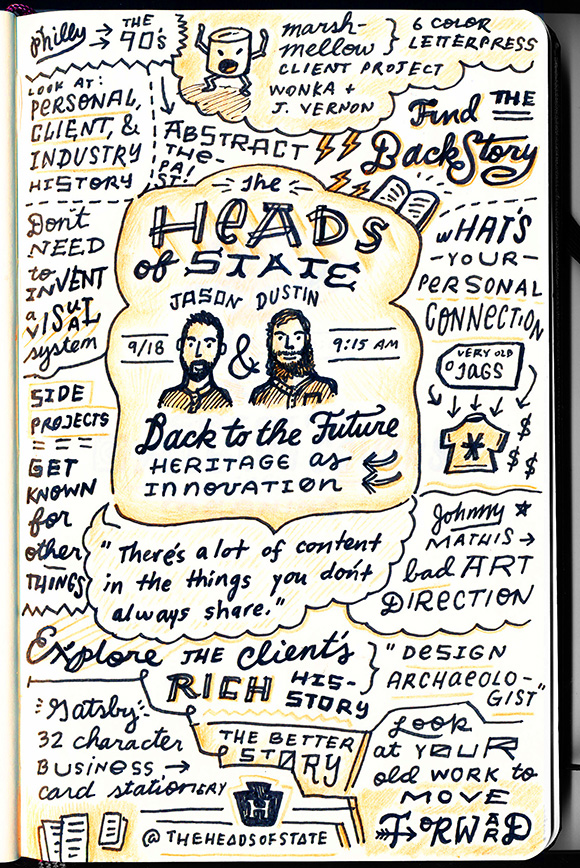 Philly → THE
90's
LOOK AT:
PERSONAL,
CLIENT, &
INDUSTRY
HISTORY
marsh-
mellow } 6 COLOR
LETTERPRESS
CLIENT PROJECT
WONKA +
J. VERNON
ABSTRACT
THE
PA-
ST!
Find THE
BackStory
Don't
NEED
to
INVENT
a
VISUAL
system
the
HEADS
of STATE
JASON DUSTIN
9/18 & 9:15 AM
Back to the Future
HERITAGE as
INNOVATION
WHAT'S
-YOUR-
PERSONAL
CONNECTION
VERY OLD
JAGS
$
$ $
SIDE
PROJECTS
GET
KNOWN
for
other
THINGS
"There's a lot of content
in the things you don't
always share."
Johnny
MATHIS →
bad ART
DIRECTION
Explore THE client's
RICH HIS-
STORY
} "DESIGN
ARCHAEOLO-
GIST"
Gatsby:
32 character
BUSINESS →
card stationERY
THE BETTER
STORY
Look
at YOUR
old WORK to
MOVE
FORWARD
H
@THEHEADSOFSTATE